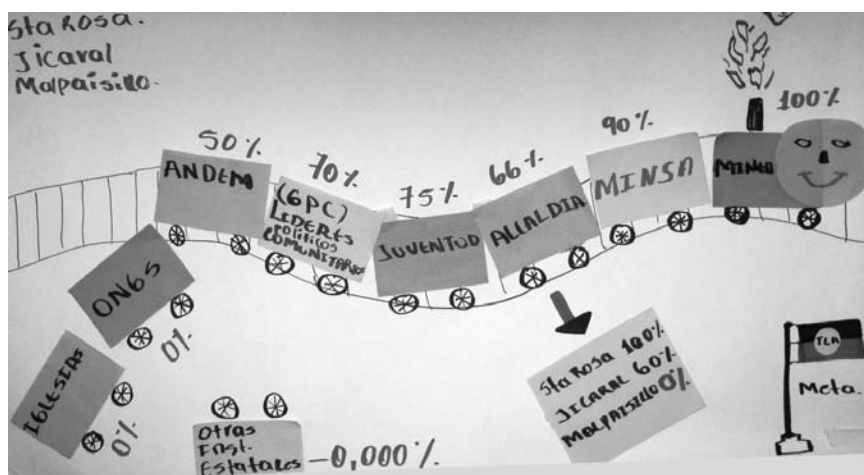 Sta Rosa.
Jicaral
Malpaisillo.
50%
ANDEM
70%
(GPC)
LIDERES
Politicos
COMUNITARIOS
75%
JUVENTUD
66%
ALCALDIA
90%
MINSA
100%
MINED
ONGs
0%
IGLESIAS
0%
Otras
Inst.
Estatales -0,000%
Sta Rosa 100%
JICARAL 60%
MALPAISILLO 0%
TLA
Meta.